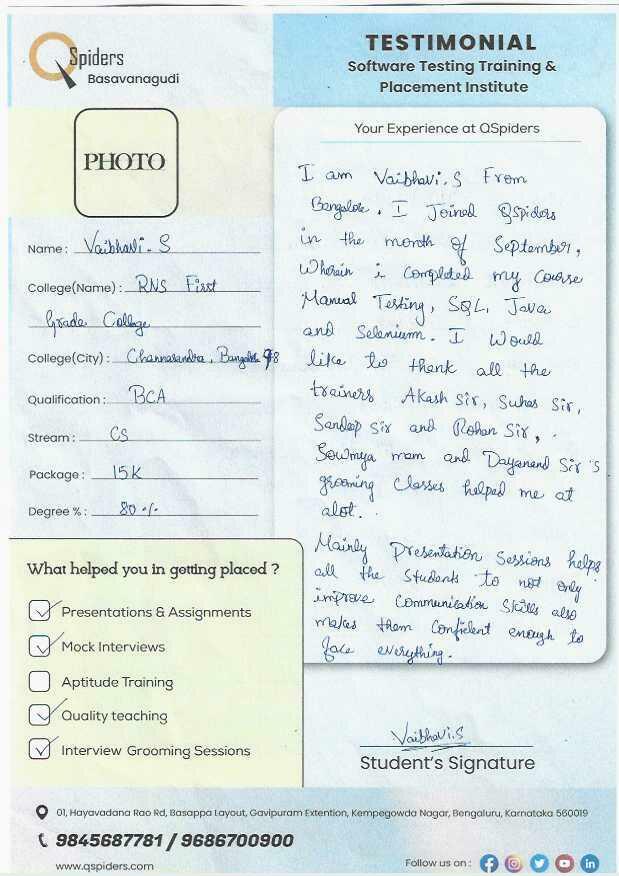 QSpiders
Basavanagudi
TESTIMONIAL
Software Testing Training &
Placement Institute
PHOTO
Name : Vaibhavi. S
College(Name) : RNS First
Grade College
College(City) : Channasandra, Bangalore 98
Qualification : BCA
Stream : CS
Package : 15K
Degree % : 80 %
Your Experience at QSpiders
I am Vaibhavi. S From
Bangalore. I Joined QSpiders
in the month of September,
Wherein i completed my course
Manual Testing, SQL, Java
and Selenium. I Would
like to thank all the
trainers Akash Sir, Suhas Sir,
Sandeep Sir and Rohan Sir, .
Sowmya mam and Dayanand Sir's
grooming Classes helped me at
alot.
Mainly Presentation Sessions helps
all the Students to not only
improve Communication Skills also
makes them Confident enough to
face everything.
What helped you in getting placed ?
Presentations & Assignments
Mock Interviews
Aptitude Training
Quality teaching
Interview Grooming Sessions
Vaibhavi.S
Student's Signature
01, Hayavadana Rao Rd, Basappa Layout, Gavipuram Extention, Kempegowda Nagar, Bengaluru, Karnataka 560019
9845687781 / 9686700900
www.qspiders.com
Follow us on :